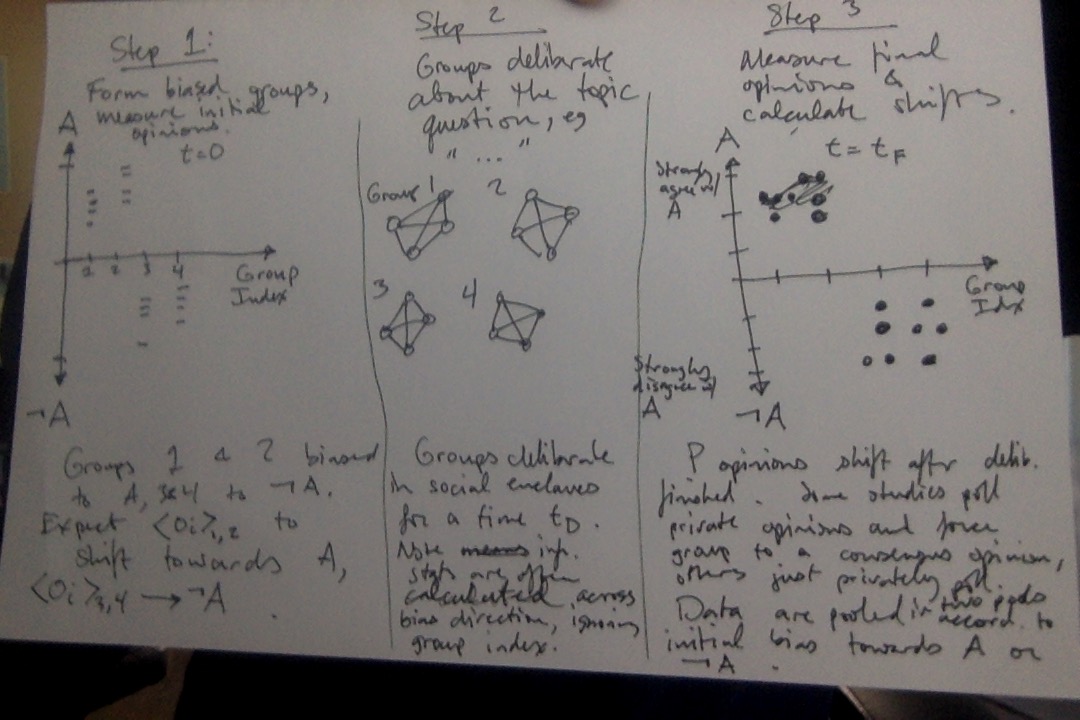 Step 1:
Form biased groups,
measure initial
opinions.
t=0
A
1 2 3 4
Group
Index
¬A
Groups 1 & 2 biased
to A, 3&4 to ¬A.
Expect <Oi>1,2 to
shift towards A,
<Oi>3,4 → ¬A
Step 2
Groups delibarate
about the topic
question, eg
" ... "
Group 1
2
3
4
Groups delibarate
in social enclaves
for a time tD.
Note inf.
stats are often
calculated across
bias direction, ignoring
group index.
Step 3
Measure final
opinions &
calculate shifts.
A
t = tF
Strongly
agree w/
A
Group
Indx
Strongly
disagree w/
A
¬A
opinions shift after delib.
finished. Some studies poll
private opinions and force
group to a consensus opinion,
others just privately poll.
Data are pooled in two
accord. to
initial bias towards A or
¬A.